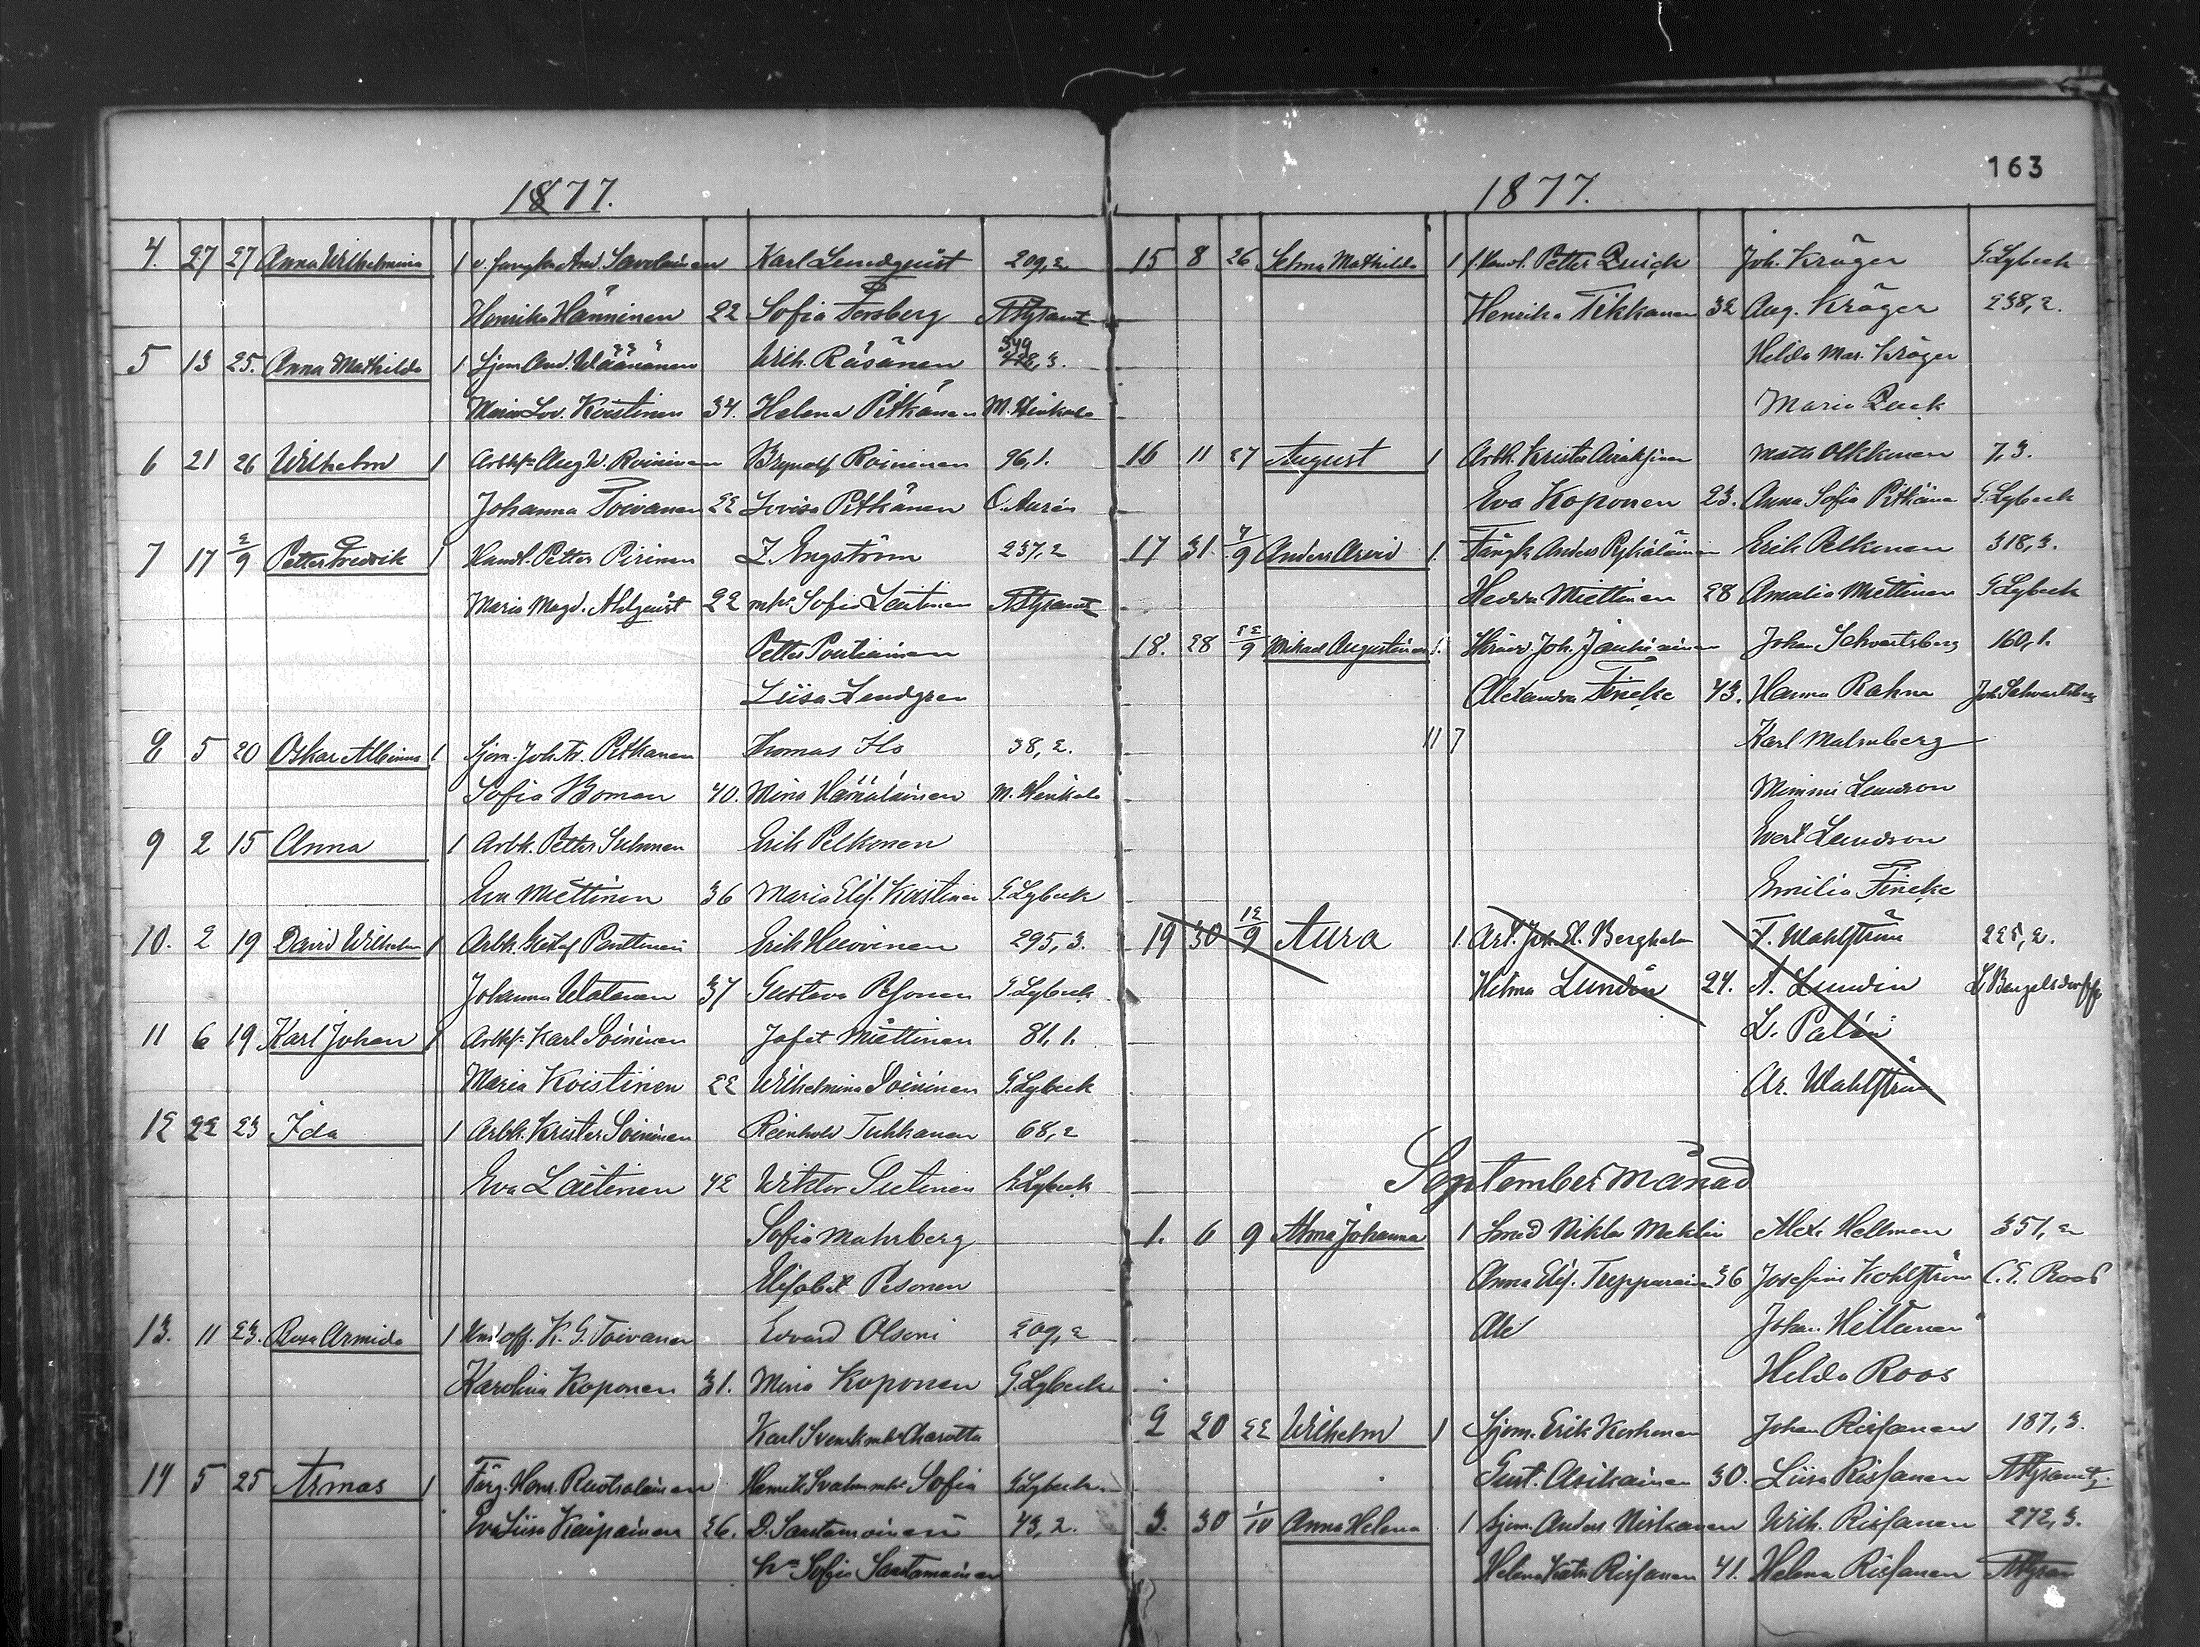 163
1877.
4. 27 27 Anna Wilhelmina 1 And. Savolainen Karl Lundquist 209,2
Henrika Hänninen 22 Sofia Forsberg
5 13 25. Anna Mathilda 1 Sjom. And. Wäänänen Wilh. Räsänen 349
Maria Lov. Koistinen 34. Helena Pitkänen M. Heikel
6 21 26 Wilhelm 1 Aug. W. Roininen Brynolf Roininen 96,1.
Johanna Toivanen 22 Lovisa Pitkänen C. Aurén
7 17 2/9 Petter Fredrik 1 Handl. Petter Pirinen Z. Engström 237,2
Maria Magd. Ahlquist 22 Sofia Laitinen
Petter Pentiäinen
Liisa Lendgren
8 5 20 Oskar Albinus 1 Sjom. Joh. Fr. Pitkanen Thomas 38,2.
Sofia Boman 40. Mina Hämäläinen M. Heikel
9 2 15 Anna 1 Arbk. Petter Suhonen Erik Pelkonen
Eva Miettinen 36 Maria Elis. Koistinen G. Lybeck
10. 2 19 David Wilhelm 1 Arbk. Gustaf Penttinen Erik Huovinen 295,3.
Johanna Watanen 37 Gustava Pesonen G. Lybeck
11 6 19 Karl Johan 1 Karl Soininen Jafet Miettinen 81,1.
Maria Koistinen 22 Wilhelmina Soininen G. Lybeck
12 22 23 Ida 1 Arbk. Krister Soininen Reinhold Tuhkanen 68,2
Eva Laitinen 42 Wiktor Sutinen G. Lybeck
Sofia Mahrberg
Elisabet Pesonen
13. 11 23. Rosa Armida 1 K. G. Toivanen Edvard Olsoni 209,2
Karolina Koponen 31. Mina Koponen G. Lybeck
Karl Svenk Charotta
14 5 25 Armas 1 Färg. Hans Ruotsalainen Henrik Svahn Sofia G. Lybeck
Eva Liisa Kaipainen 26. D. Santamoinen 43,2.
Sofia Santamoinen
1877.
15 8 26 Selma Mathilda 1 Petter Quick Joh. Kröger G. Lybeck
Henrika Tikkanen 32 Aug. Kröger 238,2.
Hilda Mar. Kröger
Maria Quick
16 11 27 August 1 Arbk. Krister Airaksinen Matts Olkkonen 7,3.
Eva Koponen 23. Anna Sofia Pitkänen G. Lybeck
17 31. 9 Anders Arvid 1. Anders Rykäläinen Erik Pelkonen 318,3.
Hedda Miettinen 28 Amalia Miettinen G. Lybeck
18. 28 22/9 Mikael Augustinus 1. Joh. Jantiainen Johan Schvartsberg 160,1.
Alexandra Fineke 43. Hanna Rahm Joh. Schvartsberg
11 7 Karl Malmberg
Mimmi Leudson
Evert Leudson
Emilia Fineke
19 30 12/9 Aura 1. Joh. H. Bergholm F. Wahlström 225,2.
Hilma Lundin 24. A. Lundin L. Bengelsdorff
L. Palén
Ar. Wahlström
September månad
1. 6 9 Alma Johanna 1 Smed Niklas Meklin Alex. Hellman 351,2
Anna Elis. Tepparainen 36 Josefina Kohlström C. E. Roos
Johan Hiltanen
Hilda Roos
2 20 22 Wilhelm 1 Sjom. Erik Korhonen Johan Rissanen 187,3.
Gust. Asikainen 30. Liisa Rissanen
3. 30 1/10 Anna Helena 1 Sjom. Anders Niskanen Wilh. Rissanen 272,3.
Helena Kat. Rissanen 41. Helena Rissanen